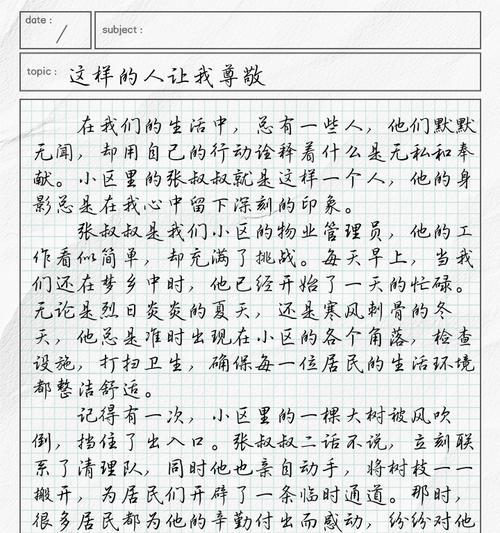 date :
subject :
topic : 这样的人让我尊敬
在我们的生活中，总有一些人，他们默默
无闻，却用自己的行动诠释着什么是无私和奉
献。小区里的张叔叔就是这样一个人，他的身
影总是在我心中留下深刻的印象。
张叔叔是我们小区的物业管理员，他的工
作看似简单，却充满了挑战。每天早上，当我
们还在梦乡中时，他已经开始了一天的忙碌。
无论是烈日炎炎的夏天，还是寒风刺骨的冬
天，他总是准时出现在小区的各个角落，检查
设施，打扫卫生，确保每一位居民的生活环境
都整洁舒适。
记得有一次，小区里的一棵大树被风吹
倒，挡住了出入口。张叔叔二话不说，立刻联
系了清理队，同时他也亲自动手，将树枝一一
搬开，为居民们开辟了一条临时通道。那时，
很多居民都为他的辛勤付出而感动，纷纷对他